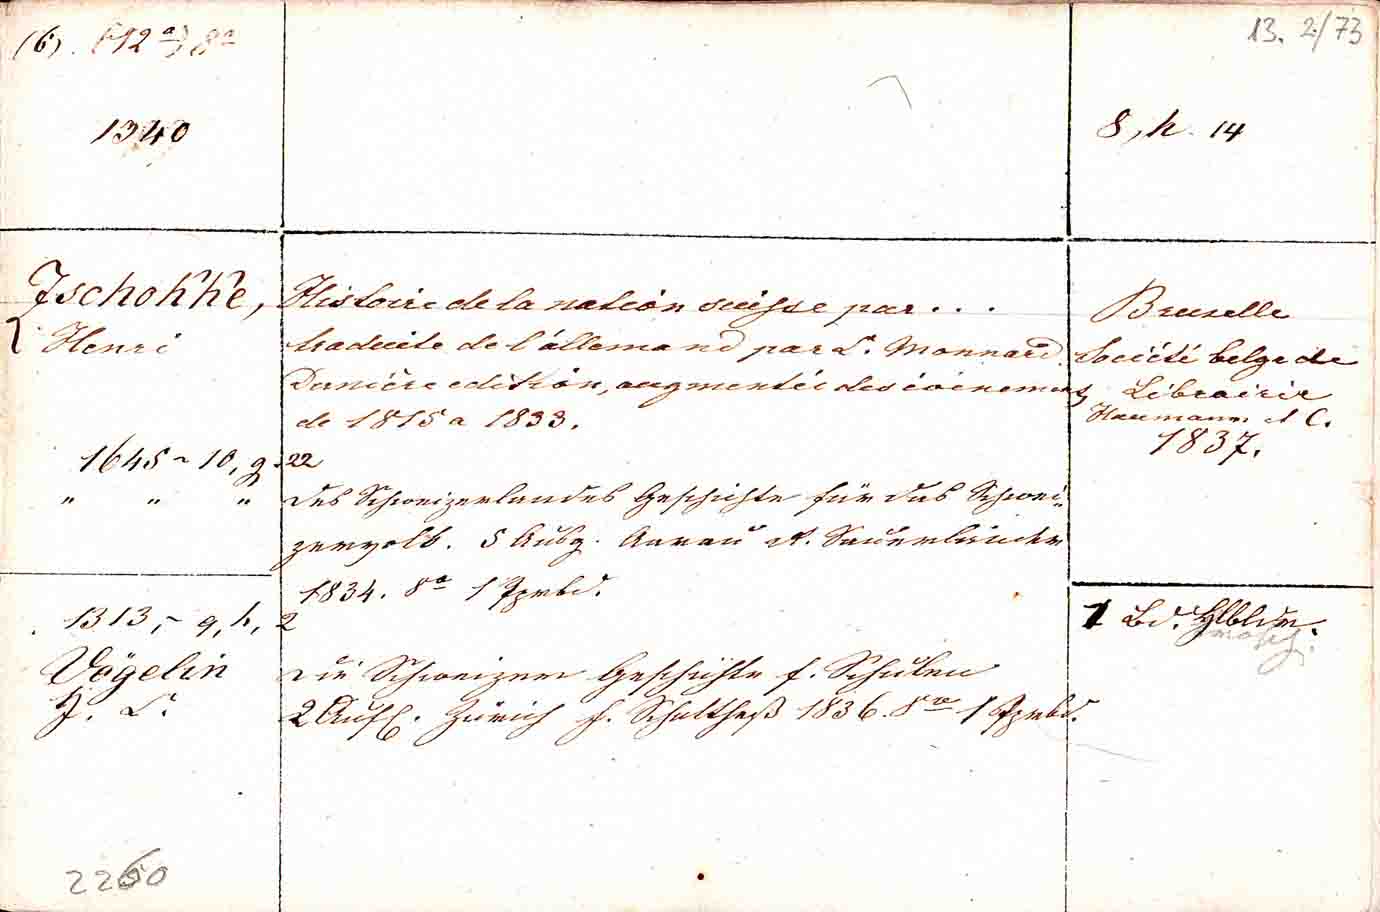 (6). (12a) 8a
13. 2/73
1340
8, h. 14
Zschokke,
Henri
Histoire de la nation suisse par...
traduite de l'allemand par C. Monnard.
Dernière edition, augmentée des évènements
de 1815 a 1833.
Bruxelle
Société belge de
Librairie
Haumann et C.
1837.
1645 ~ 10, g. 22
" " "
Des Schweizerlandes Geschichte für das Schwei-
zervolk. 5 Ausg. Aarau Sauerländer
1834. 8o 1
1313, ~ 9, h, 2
1 Bd. Hlbldr.
Vögelin
J. C.
Die Schweizer Geschichte f. Schulen
2 Aufl. Zürich Schultheß 1836. 8vo 1
2260